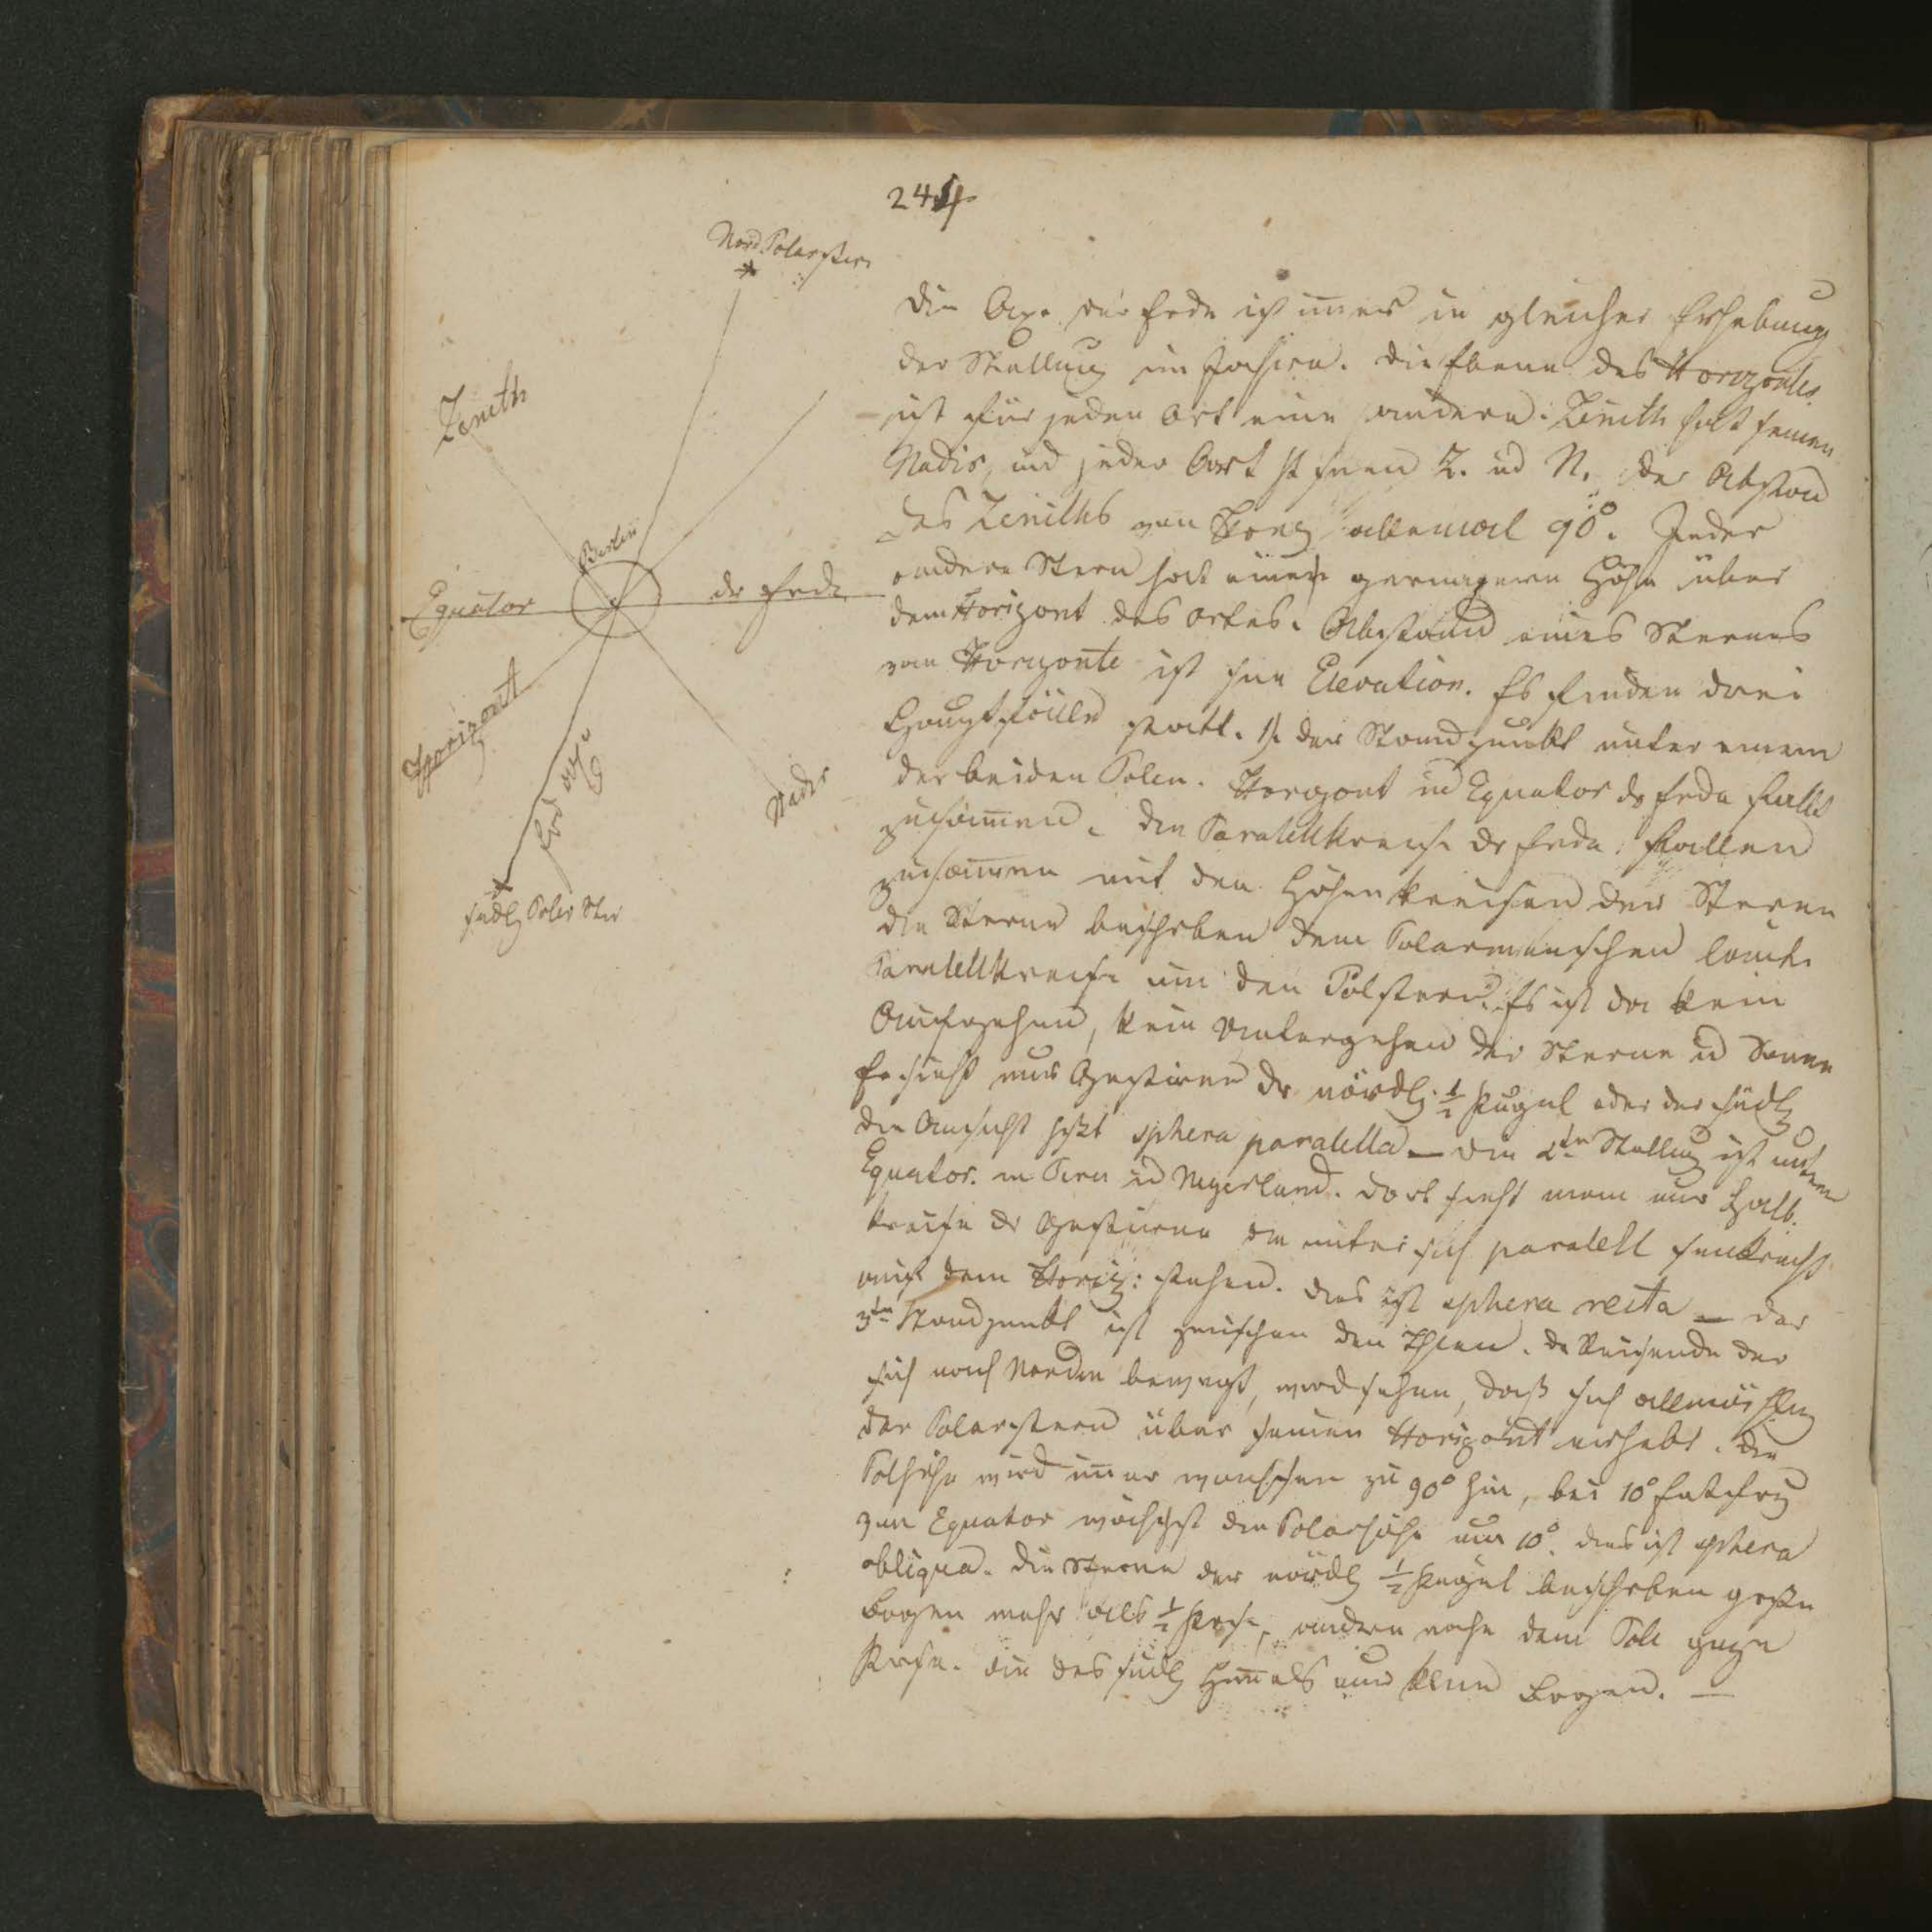 244
Nord Polarstern
Zenith
Berlin
Equator der Erde
Horizont
Erd axe
Nadir
südl Polar Ster
Die Axe der Erde ist immer in gleicher Erhebung
der Stellung im. Die Ebene des Horizontes
ist für jeden Ort eine andere. Zenith hat seinen
Nadir, und jeder Ort st seinen Z. ud N. Der Abstand
des Zeniths von Horiz allemal 90°. Jeder
andere Stern hat eine geringere Höhe über
dem Horizont des Ortes. Abstand eines Sternes
vom Horizonte ist seine Elevation. Es finden drei
Hauptfälle statt. 1, der Standpunkt unter einem
der beiden Polen. Horizont ud Equator dr Erde fallen
zusammen. Die Parallelkreise dr Erde fallen
zusammen mit den Höhenkreisen der Sterne
die Sterne beschrben dem Polarmenschen lauter
Parallelkreise um den Polstern. Es ist da kein
Aufgehen, kein Untergehen der Sterne ud Sonne
Er sieht nur Gestirne dr nördl. ½ Kugel oder der südl
die Ansicht heißt sphera paralella — die 2te Stellung ist unterm
Equator. in Peru ud Negerland. Dort sieht man nur Halb
kreise dr Gestirne die unter sich paralell senkrecht
auf dem Horiz: stehen. Dies ist sphera recta — der
3te Standpunkt ist zwischen den Polen. Dr Reisende der
sich nach Norden bewegt, wird sehen, daß sich allmählig
der Polarstern über seinen Horizont erhebt. Die
Polhöhe wird immer wachsen zu 90° hin, bei 10° Entfrng
vom Equator wächst die Polarhöhe um 10°. dies ist sphera
obliqua. Die Sterne der nördl ½ Kugel beschrben große
Bogen mehr als ½ Kreise, andere nahe dem Pole ganze
Kreise. Die des südl Himmels nur kleine Bogen. —